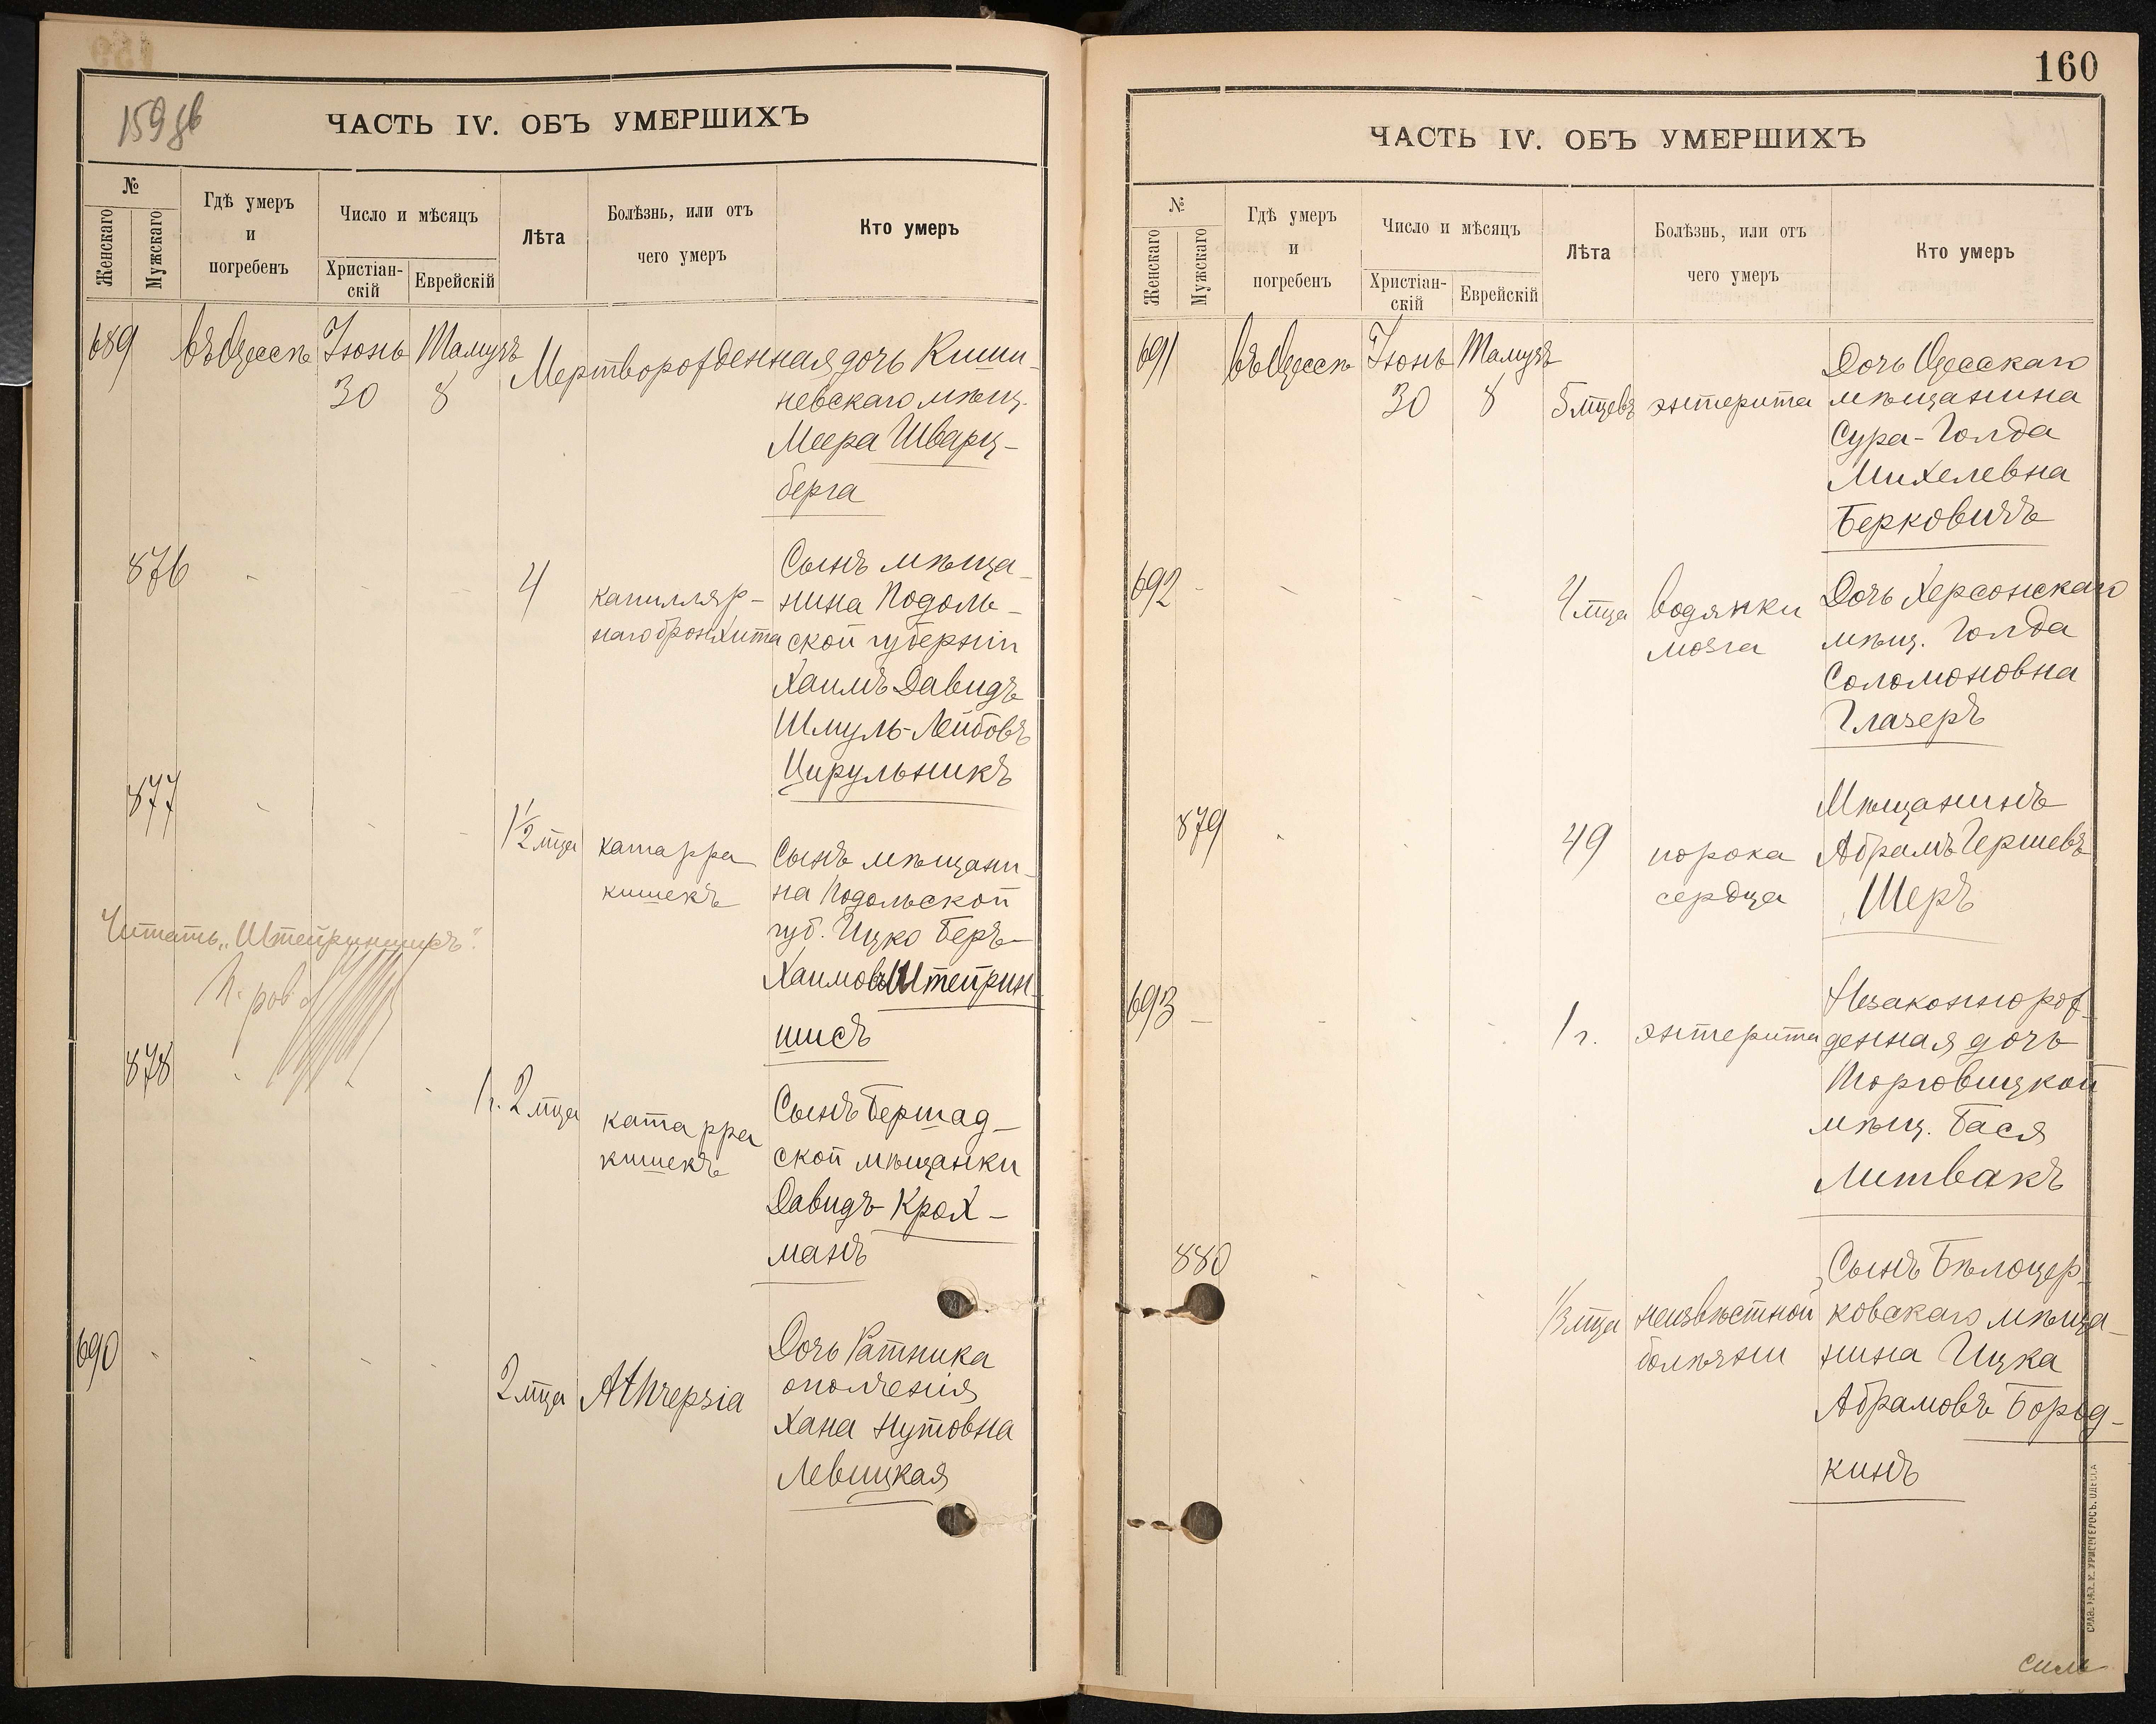 159 об
ЧАСТЬ IV. ОБЪ УМЕРШИХЪ
№
Женскаго
Мужскаго
Гдѣ умеръ
и
погребенъ
Число и мѣсяцъ
Христіан-
скій
Еврейскій
Лѣта
Болѣзнь, или отъ
чего умеръ
Кто умеръ
689 въ Одессѣ Іюнь Тамузъ Мертворожденная дочь Киши-
30 8 невскаго мѣщ.
Меера Шварц-
берга
876 4 капилляр-
наго бронхита
Сынъ мѣща-
нина Подоль-
ской губерніи
Хаимъ Давидъ
Шмуль-Лейбовъ
Цирульникъ
877 1½ мца катарра
кишекъ
Сынъ мѣщани-
на Подольской
губ. Ицко Беръ-
Хаимовъ Штейрин-
шисъ
Читать „
878 1 г. 2 мца катарра
кишекъ
Сынъ Бершад-
ской мѣщанки
Давидъ Крох-
манъ
690 2 мца Athrepsia
Дочь Ратника
ополченія
Хана Нутовна
Левицкая
160
ЧАСТЬ IV. ОБЪ УМЕРШИХЪ
№
Женскаго
Мужскаго
Гдѣ умеръ
и
погребенъ
Число и мѣсяцъ
Христіан-
скій
Еврейскій
Лѣта
Болѣзнь, или отъ
чего умеръ
Кто умеръ
691 въ Одессѣ Іюнь Тамузъ
30 8 5 мцевъ энтерита
Дочь Одесскаго
мѣщанина
Сура-Голда
Михелевна
Берковичъ
692 4 мца водянки
мозга
Дочь Херсонскаго
мѣщ. Голда
Соломоновна
Глазеръ
879 49 порока
сердца
Мѣщанинъ
Абрамъ Гершевъ
Шеръ
693 1 г. энтерита
Незаконнорож-
денная дочь
Торговицкой
мѣщ. Бася
Литвакъ
880 1/3 мца неизвѣстной
болѣзни
Сынъ Бѣлоцер-
ковскаго мѣща-
нина Ицка
Абрамовъ Бород-
кинъ